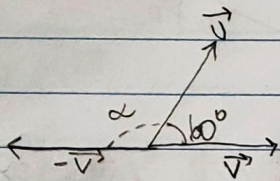 U⃗
α 60°
-V⃗ V⃗